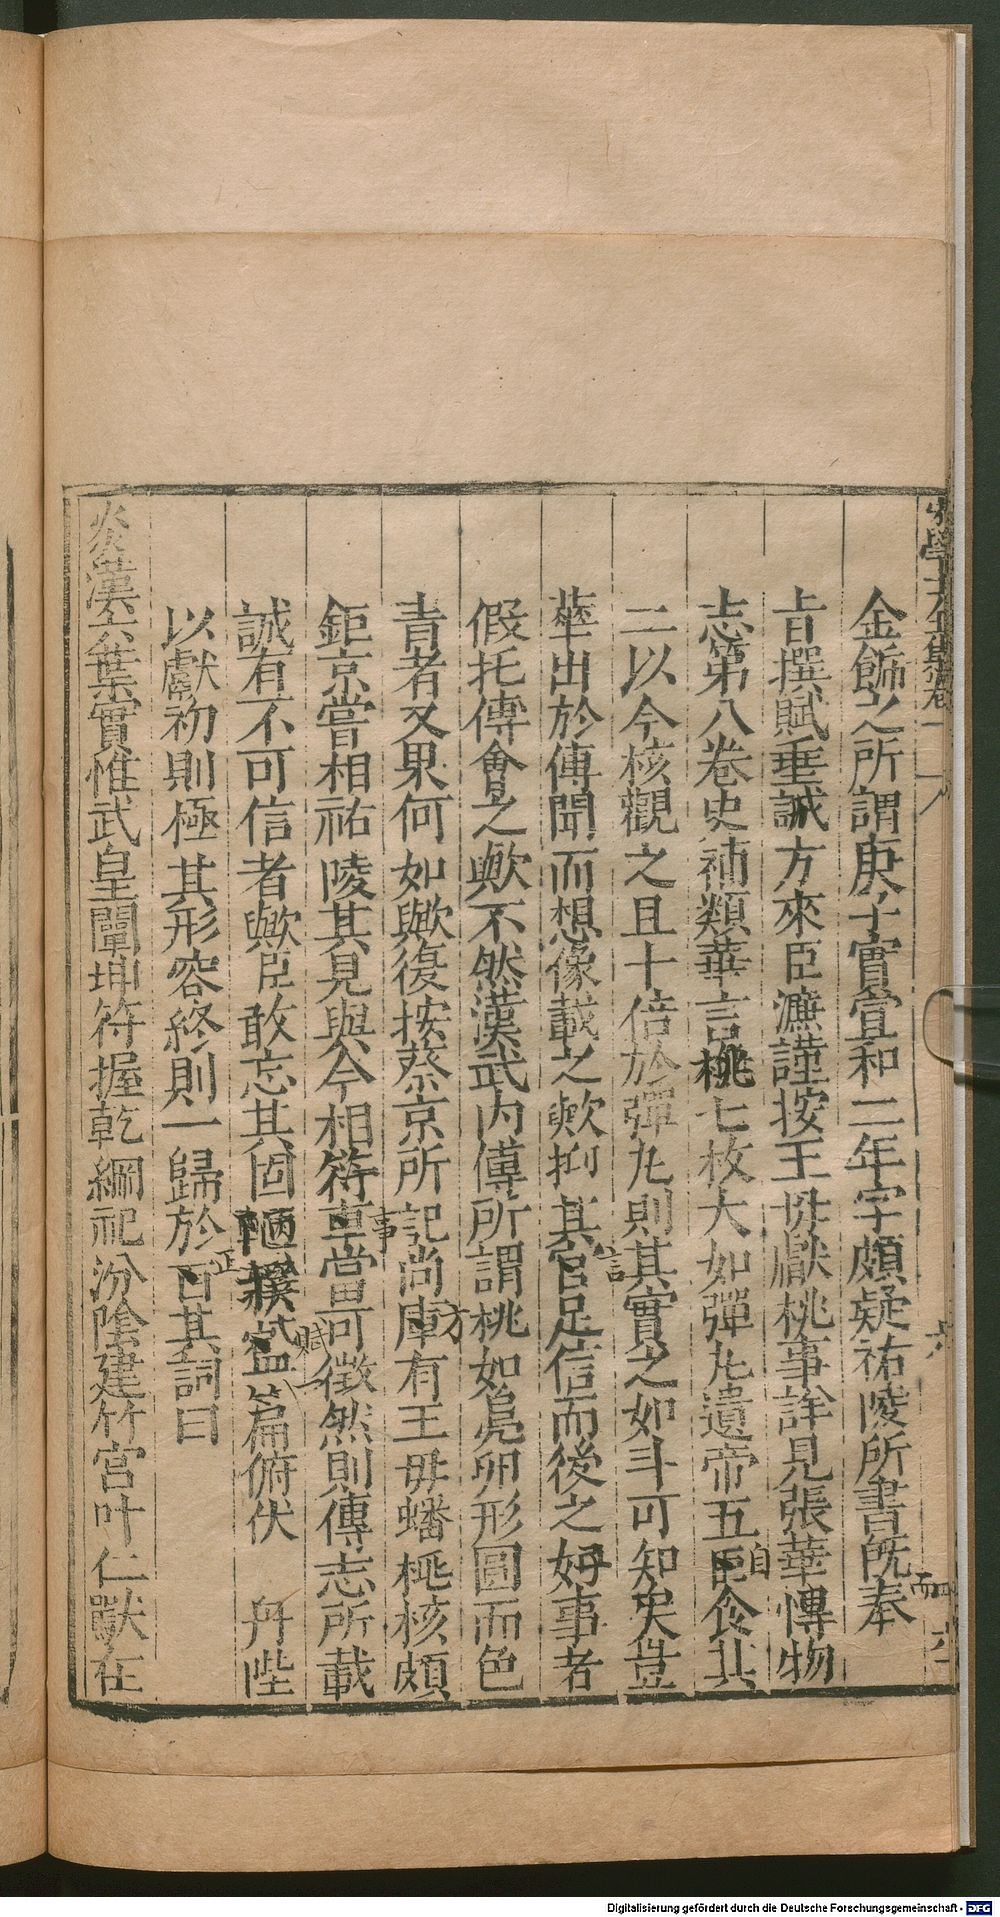 宋學士全集卷一
六
金飾之所謂庚子實宣和二年字頗疑祐陵所書既奉
旨撰賦垂誠方來臣濂謹按王毋獻桃事詳見張華慱物
志第八卷史補類華言桃七枚大如彈丸遺帝五自食其
二以今核觀之且十倍於彈丸則其實之如斗可知矣豈
華出於傳聞而想像載之歟抑其言足信而後之好事者
假托傅會之歟不然漢武内傳所謂桃如鳧卵形圓而色
青者又果何如歟復按蔡京所記尚方庫有王毋蟠桃核頗
鉅京嘗相祐陵其見與今相符事當可徵然則傳志所載
誠有不可信者歟臣敢忘其固陋撰賦一篇俯伏 丹陛
以獻初則極其形容終則一歸於正其詞曰
炎漢六葉實惟武皇闡坤符握乾綱祀汾陰建竹宮叶仁獸在
Digitalisierung gefördert durch die Deutsche Forschungsgemeinschaft - DFG